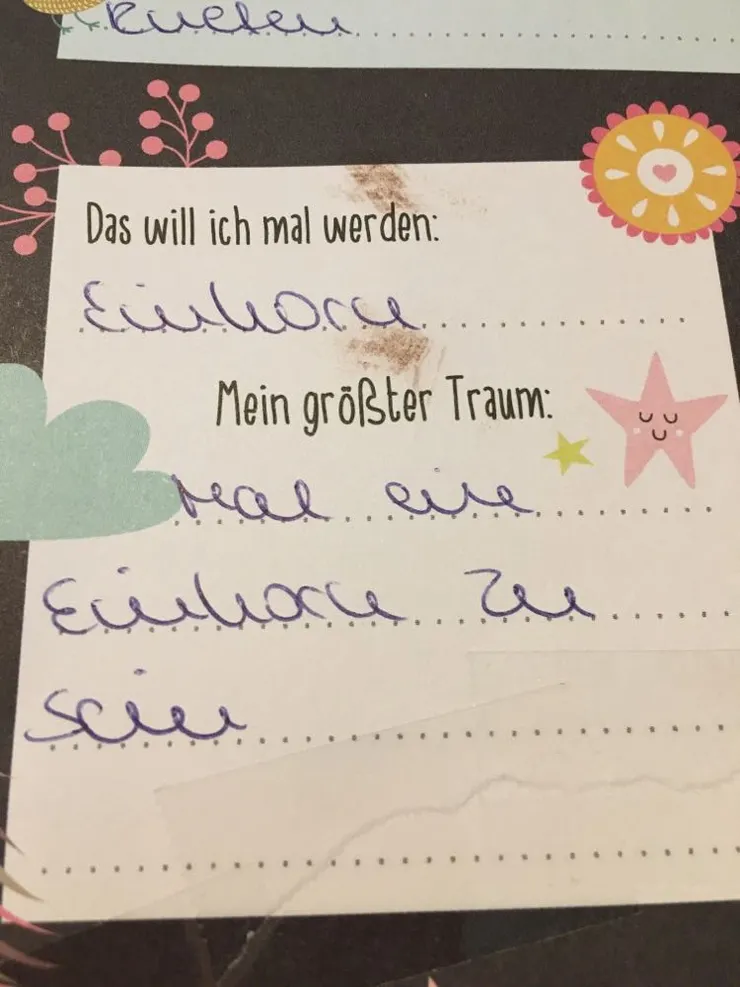 Das will ich mal werden:
Einhorn
Mein größter Traum:
Mal ein
Einhorn zu
sein